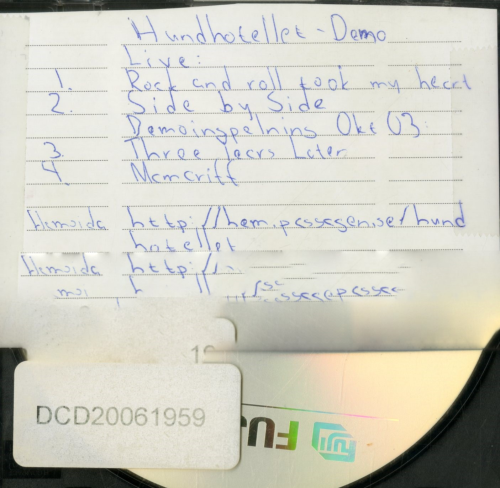 Hundhotellet - Demo
Live:
1. Rock and roll took my heart
2. Side by Side
Demoinspelning Okt 03
3. Three Years Later
4. Mcmcriff
Hemsida http://hem.passagen.se/hund
hotellet
Hemsida http://
DCD20061959
FUJ